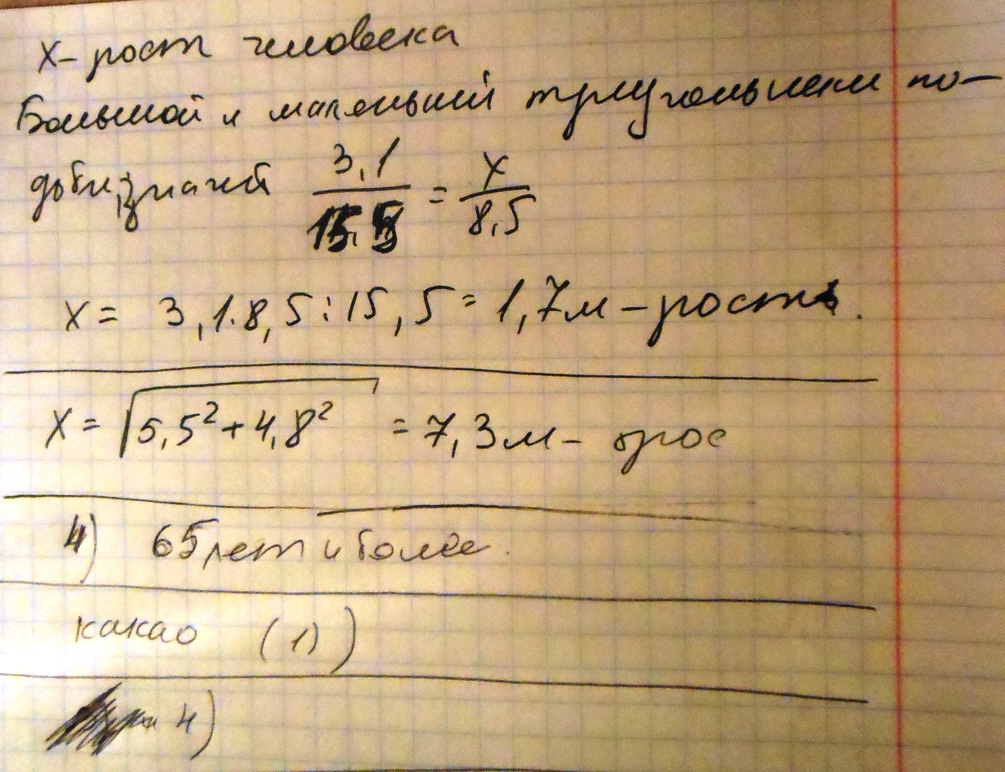 x- рост человека
Большой и маленький треугольники по-
добны, значит 3,1/15,5 = x/8,5
x = 3,1·8,5:15,5 = 1,7м - рост.
x = √5,5²+4,8² = 7,3м - трос
4) 65 лет и более.
какао (1))
4)